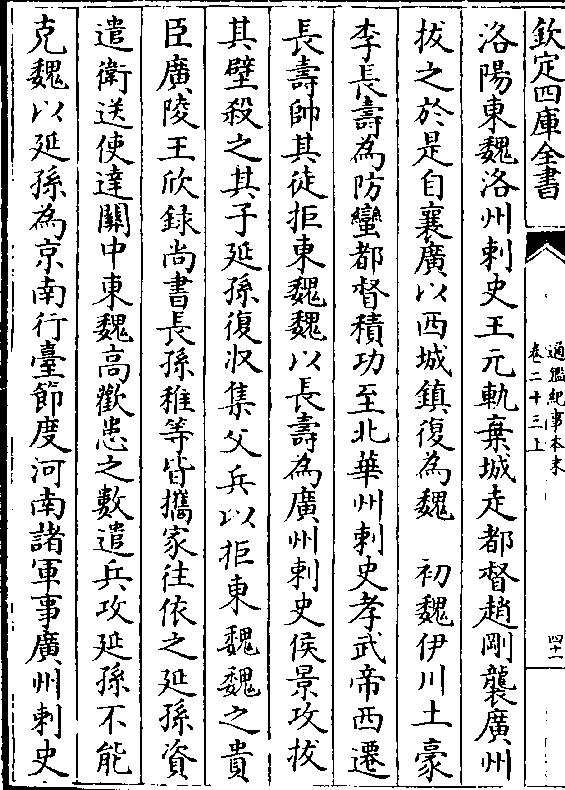 欽定四庫全書
通鑑紀事本末
卷二十三上
四十一
洛陽東魏洛州刺史王元軌棄城走都督趙剛襲廣州
拔之於是自襄廣以西城鎮復為魏　初魏伊川土豪
李長壽為防蠻都督積功至北華州刺史孝武帝西遷
長壽帥其徒拒東魏魏以長壽為廣州刺史侯景攻拔
其壁殺之其子延孫復收集父兵以拒東魏魏之貴
臣廣陵王欣録尚書長孫稚等皆攜家往依之延孫資
遣衛送使達關中東魏高歡患之數遣兵攻延孫不能
克魏以延孫為京南行臺節度河南諸軍事廣州刺史